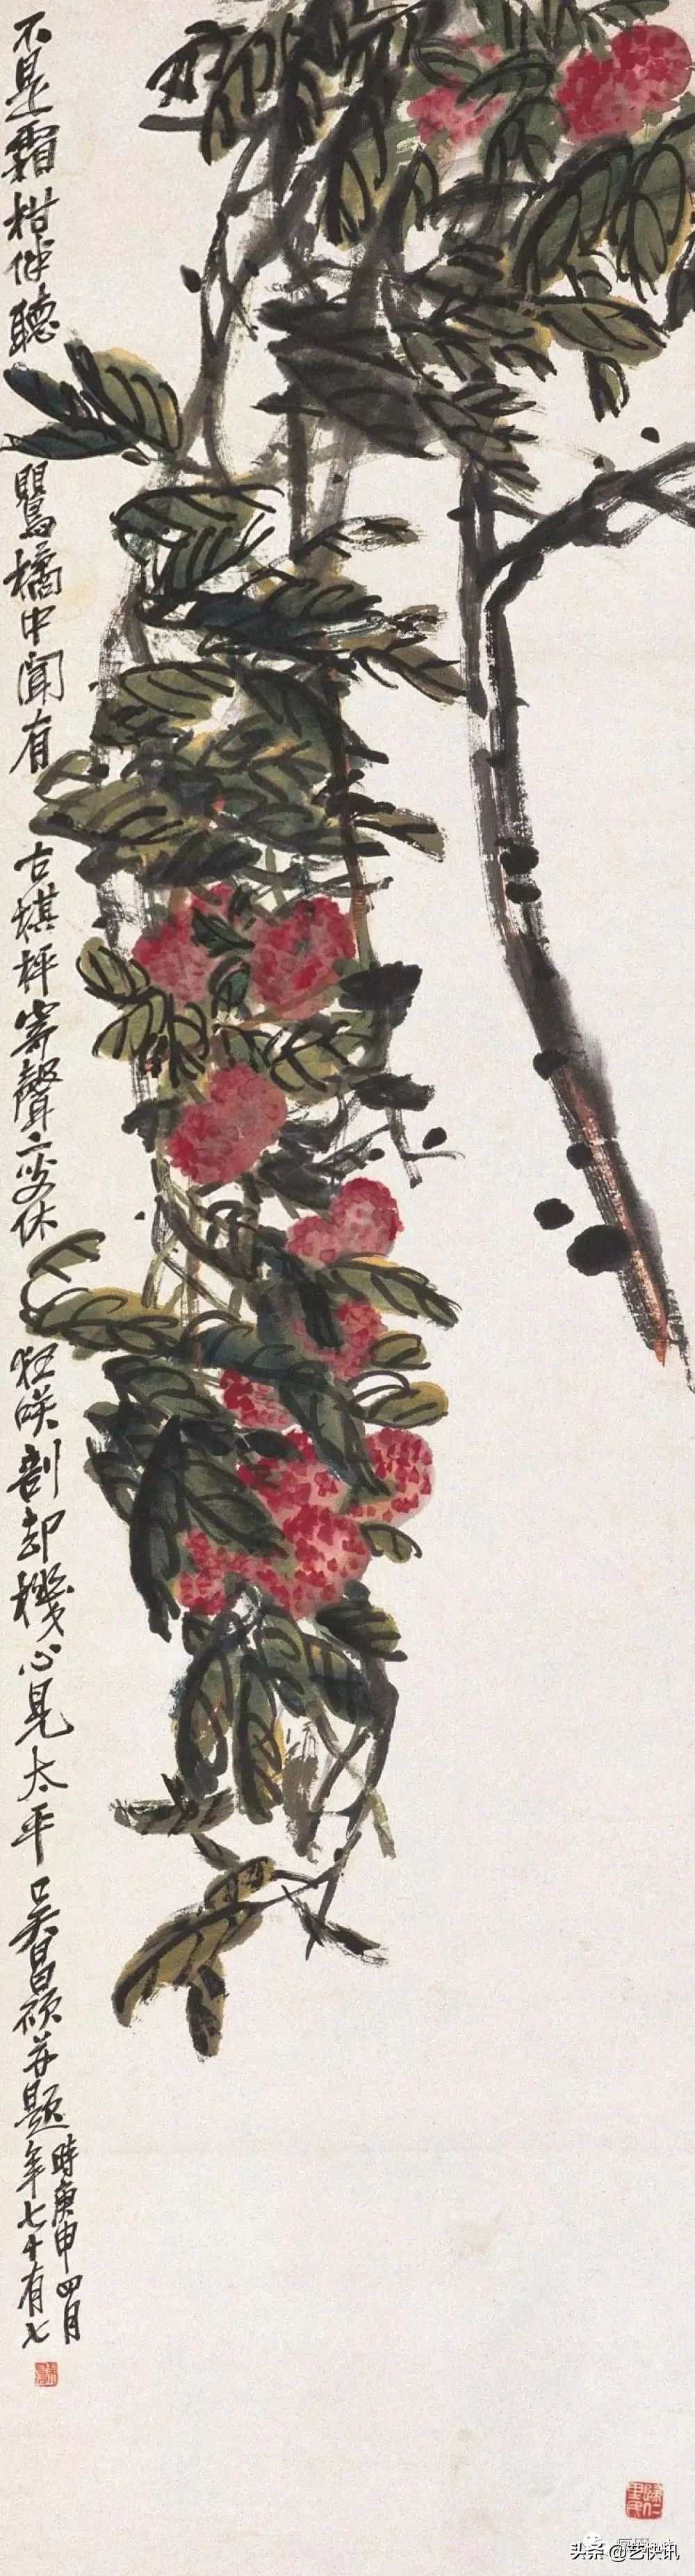 不是霜柑伴聽鸎橘中聞有古棋枰寄聲二叟休狂咲剖却機心見太平吳昌碩并題
時庚申四月
年七十有七
歸仁里民
头条@艺快讯